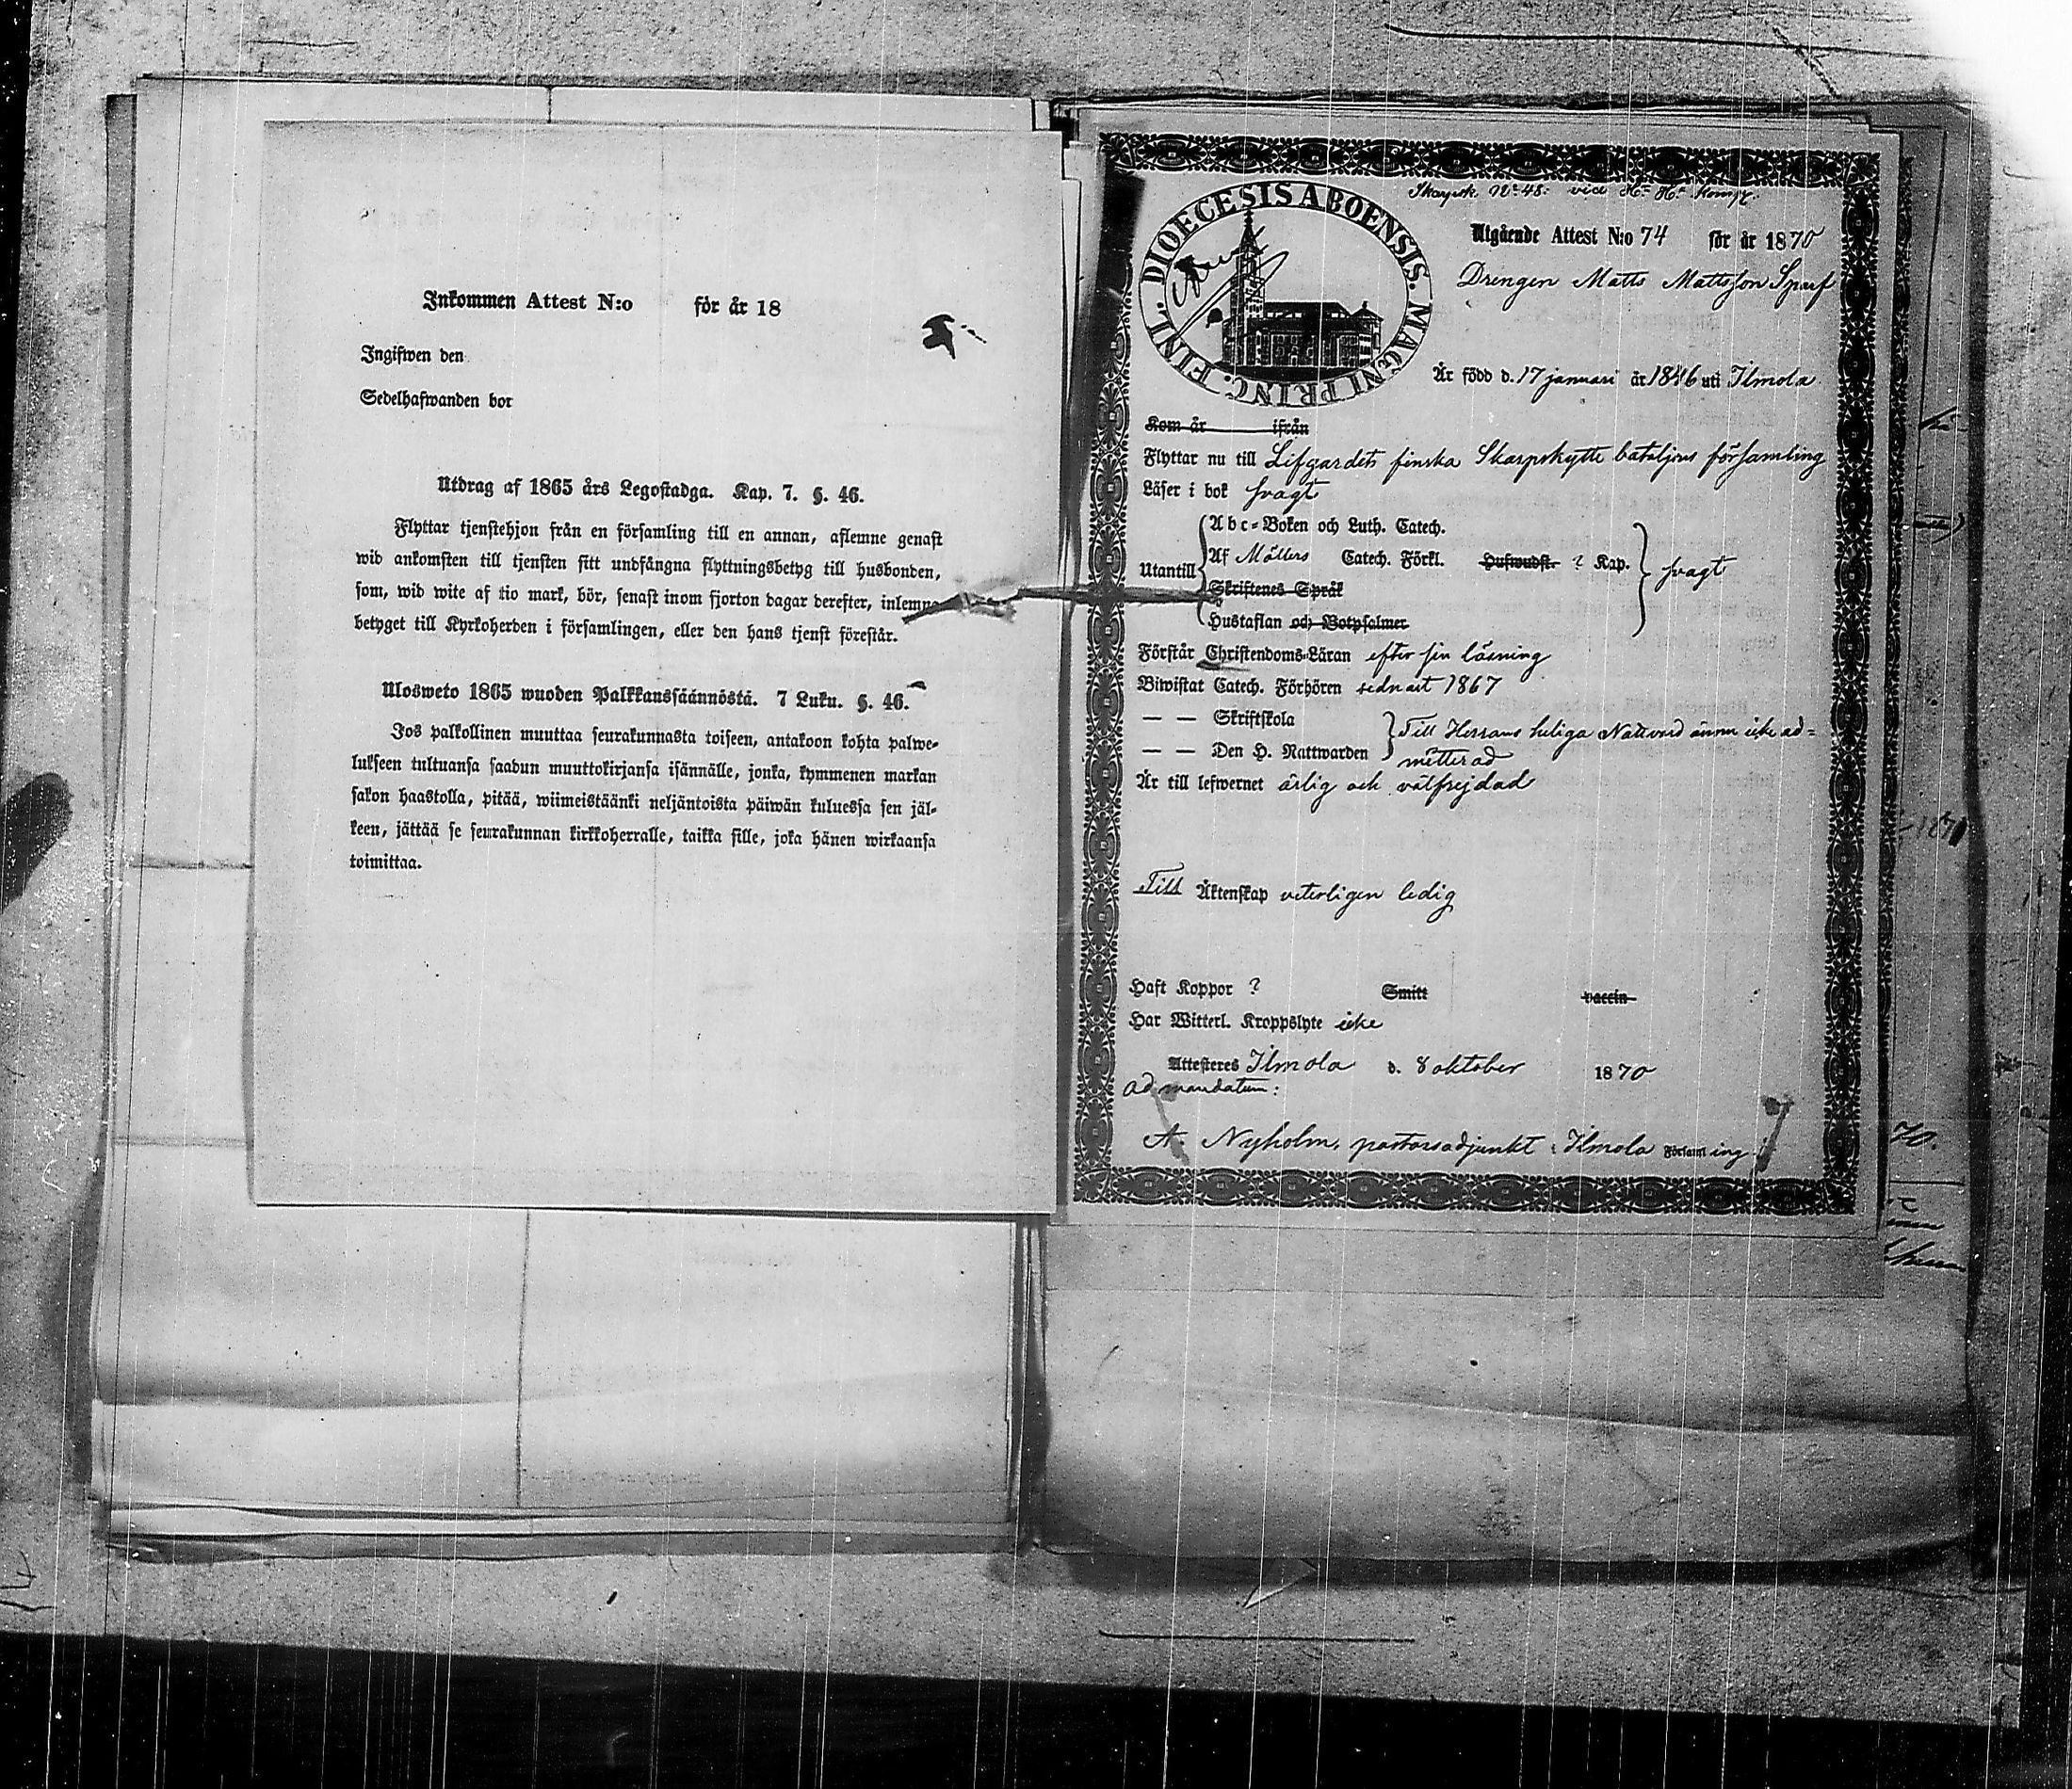 Inkommen Attest N:o för år 18
Ingifwen den
Sedelhafwanden bor
Utdrag af 1865 års Legostadga. Kap. 7. §. 46.
Flyttar tjenstehjon från en församling till en annan, aflemne genast
wid ankomsten till tjensten sitt undfångna flyttningsbetyg till husbonden,
som, wid wite af tio mark, bör, senast inom fjorton dagar derefter, inlemna
betyget till Kyrkoherden i församlingen, eller den hans tjenst förestår.
Ulosweto 1865 wuoden Palkkanssäännöstä. 7 Luku. §. 46.
Jos palkollinen muuttaa seurakunnasta toiseen, antakoon kohta palwe-
lukseen tultuansa saadun muuttokirjansa isännälle, jonka, kymmenen markan
sakon haastolla, pitää, wiimeistäänki neljäntoista päiwän kuluessa sen jäl-
keen, jättää se seurakunnan kirkkoherralle, taikka sille, joka hänen wirkaansa
toimittaa.
DIOECESIS ABOENSIS. MAGNI PRINC. FINL.
Skarpsk. No 48: vid Komp:
Utgående Attest N:o 74 för år 1870
Drengen Matts Mattsson Sparf
Är född d. 17 januari år 1846 uti Ilmola
Kom år ifrån
Flyttar nu till Lifgardets finska Skarpskytte bataljons församling
Läser i bok svagt
Utantill
Abc-Boken och Luth. Catech.
Af Möllers Catech. Förkl. Hufwudst. ? Kap.
svagt
Skriftenes Språk
Hustaflan och Botpsalmer
Förstår Christendoms-Läran efter sin läsning
Biwistat Catech. Förhören sednast 1867
— — Skriftskola
— — Den H. Nattwarden
Till Herrans heliga Nattvard ännu icke ad=
mitterad
Är till lefwernet ärlig och välfrejdad
Till Äktenskap veterligen ledig
Haft Koppor ? Smitt vaccin
Har Witterl. Kroppslyte icke
Attesteres Ilmola d. 8 oktober 1870
Ad mandatum:
A. Nyholm, pastorsadjunkt i Ilmola Församling
1870
70.